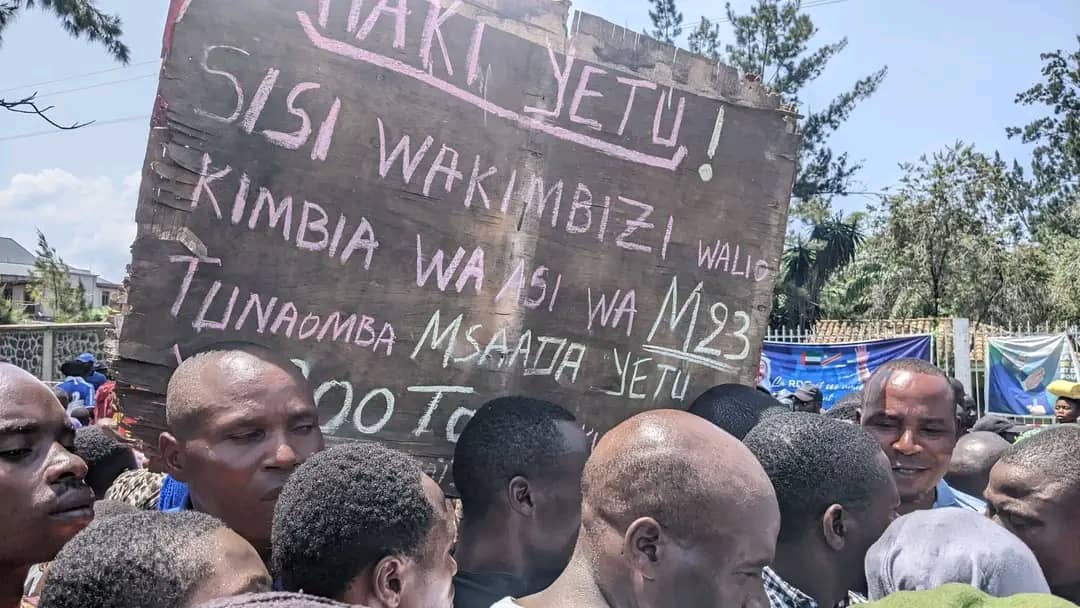 HAKI YETU!
SISI WAKIMBIZI WALIO
KIMBIA WAASI WA M23
TUNAOMBA MSAADA YETU